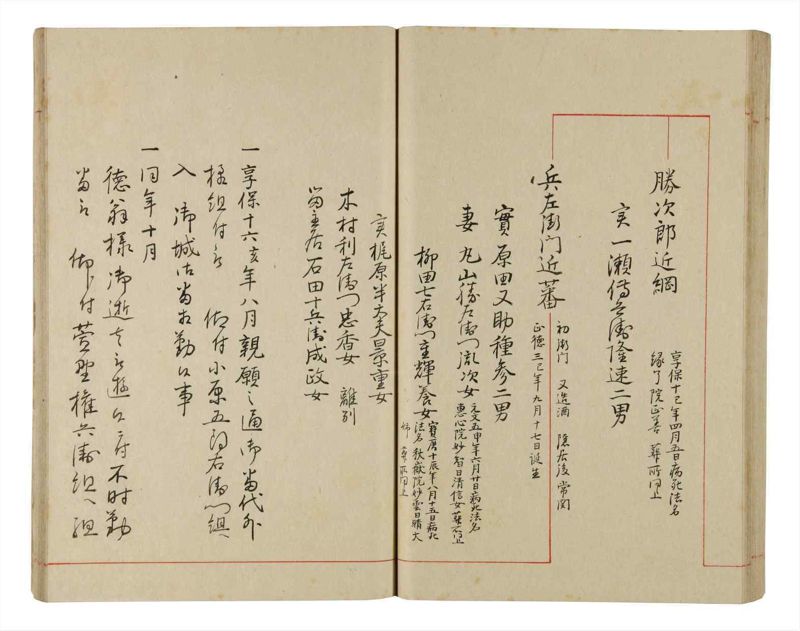 勝次郎近綱
享保十巳年四月五日病死法名
縁了院正善 葬所同上
実一瀬傳兵衛隆速二男
兵左衛門近蕃
初衛門 又造酒 隠居後常関
正徳三巳年九月十七日誕生
實原田又助種参二男
妻 丸山勝左衛門胤次女
元文五申年六月廿日病死法名
恵心院妙智日清信女葬所同上
柳田七右衛門重輝養女
寶暦十辰年八月十五日病死
法名秋嶽院妙雲日晴大
姉 葬所同上
実梶原半太夫景重女
木村利左衛門忠香女 離別
當主居石田十兵衛成政女
一享保十六亥年八月親願之通御當代外
様組付被 仰付小原五郎右衛門組
入 御城江當相勤候事
一同年十月
徳翁様御逝去被遊候ニ付不時勤
當被 仰付菅野権兵衛組へ組